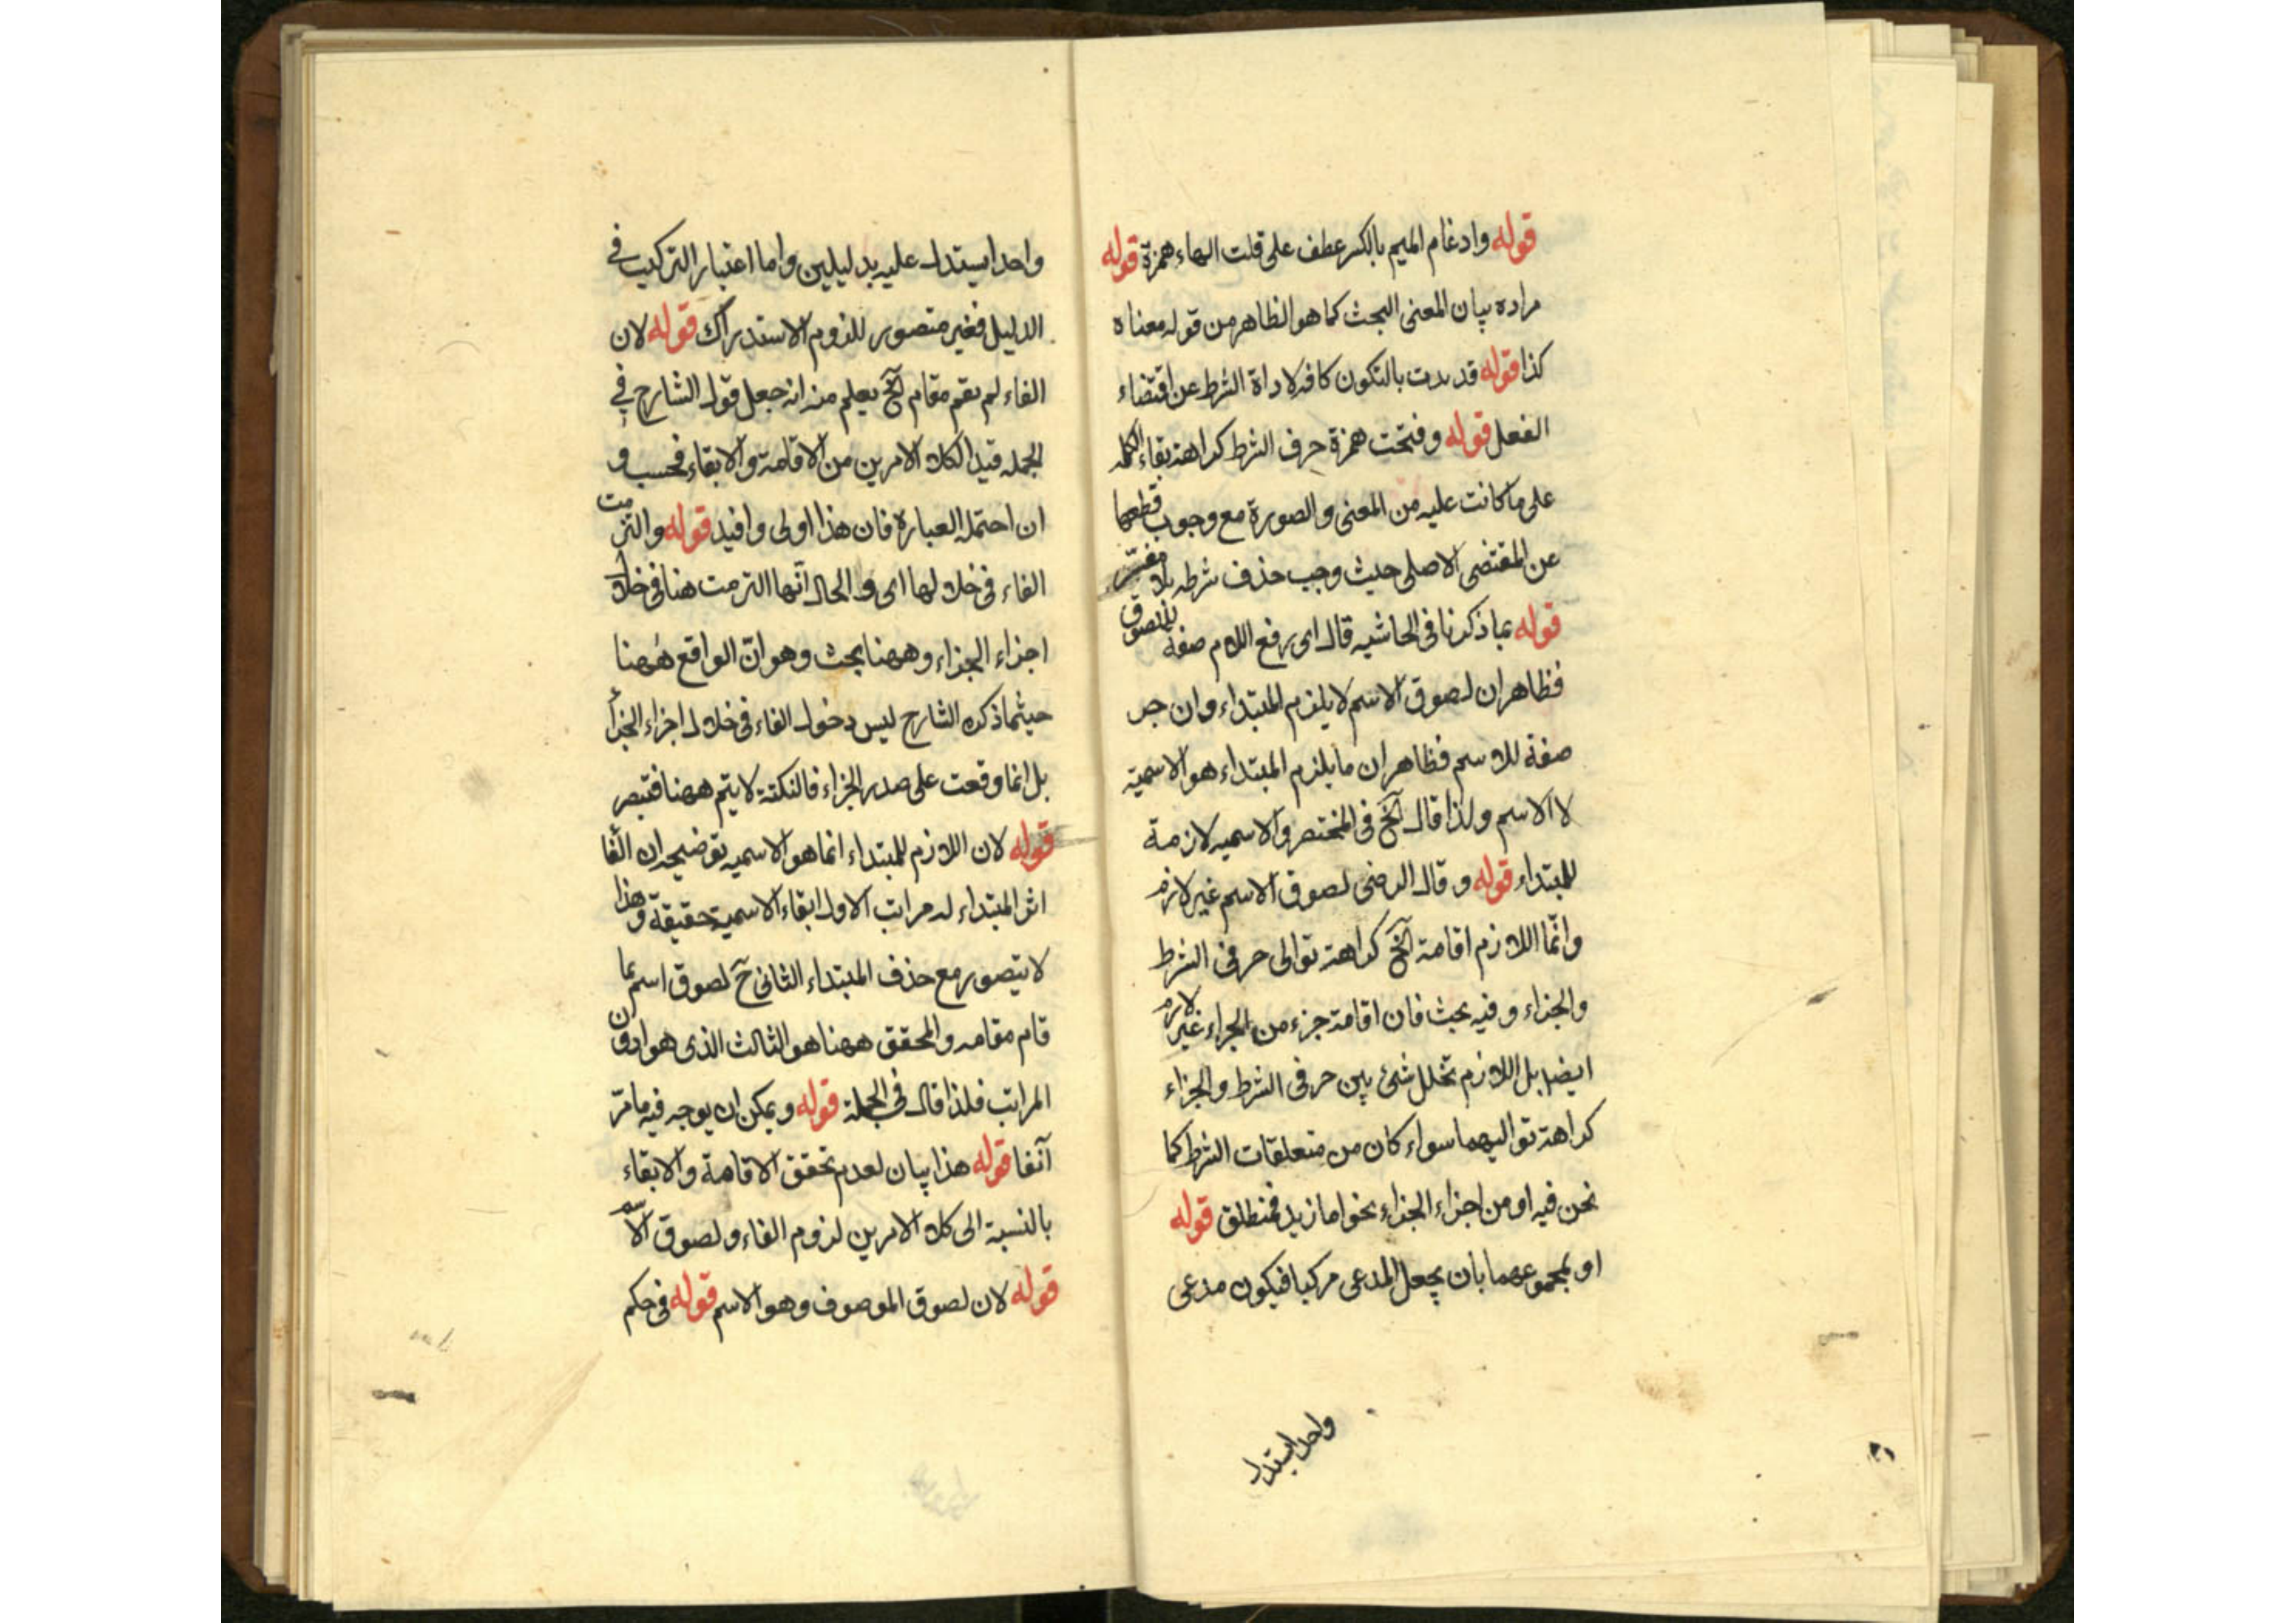 قوله وادغام الميم بالكسر عطف على قلت الهاء همزة قوله
مراده بيان المعنى البحث كما هو الظاهر من قوله معناه
كذا قوله قدبدت بالتكون كافه لاداة الشرط عن اقتضاء
الفعل قوله وفتحت همزة حرف الشرط كراهة بقاء الكلمه
على ما كانت عليه من المعنى والصورة مع وجوب قطعها
عن المقتضى الاصلى حيث وجب حذف شرطه بلا مفسّر
قوله بما ذكرنا فى الحاشيه قال اى رفع اللام صفة للصوق
فظاهر ان لصوق الاسم لا يلزم المبتداء وان جر
صفة للاسم فظاهر ان ما يلزم المبتداء هو الاسمية
لا الاسم ولذا قال آلخ فى المختصر والاسميه لازمة
للمبتداء قوله وقال الرضى لصوق الاسم غير لازم
وانّما اللازم اقامة آلخ كراهة توالى حرفى الشرط
والجزاء وفيه بحث فان اقامة جزء من الجزاء غير لازم
ايضا بل اللازم تخلل شئ بين حرفى الشرط والجزاء
كراهة تواليهما سواء كان من متعلقات الشرط كما
نحن فيه او من اجزاء الجزاء نحو اما زيد فمنطلق قوله
او بمجموعهما بأن يجعل المدعى مركبا فيكون مدعى
واحدا يستدل
واحدا يستدل عليه بدليلين واما اعتبار التركيب فى
الدليل فغير متصور للزوم الاستدراك قوله لان
الفاء لم يقم مقام آلخ يعلم منه انه جعل قول الشارح فى
الجمله قيدا لكلا الامرين من الاقامة والابقاء فحسب و
ان احتمله العبارة فان هذا اولى وافيد قوله والتزمت
الفاء فى خلالها اى والحال آنها التزمت هنا فى خلال
اجزاء الجزاء وههنا بحث وهو انّ الواقع ههنا
حيثما ذكره الشارح ليس دخول الفاء فى خلال اجزاء الجزأ
بل انما وقعت على صدر الجزاء فالنكتة لا يتم ههنا فتبصر
قوله لان اللازم للمبتداء انما هو الاسميه توضيحه ان الفا
اثر المبتداء له مراتب الاول ابقاء الاسمية حقيقة وهذا
لا يتصور مع حذف المبتداء الثانى ح لصوق اسم بما
قام مقامه والمحقق ههنا هو الثالث الذى هو ادون
المراتب فلذا قال فى الجملة قوله ويمكن ان يوجه فيه ما مرّ
آنفا قوله هذا بيان لعدم تحقق الاقامة والابقاء
بالنسبة الى كلا الامرين لزوم الفاء ولصوق الاسم
قوله لان لصوق الموصوف وهو الاسم قوله فى حكم